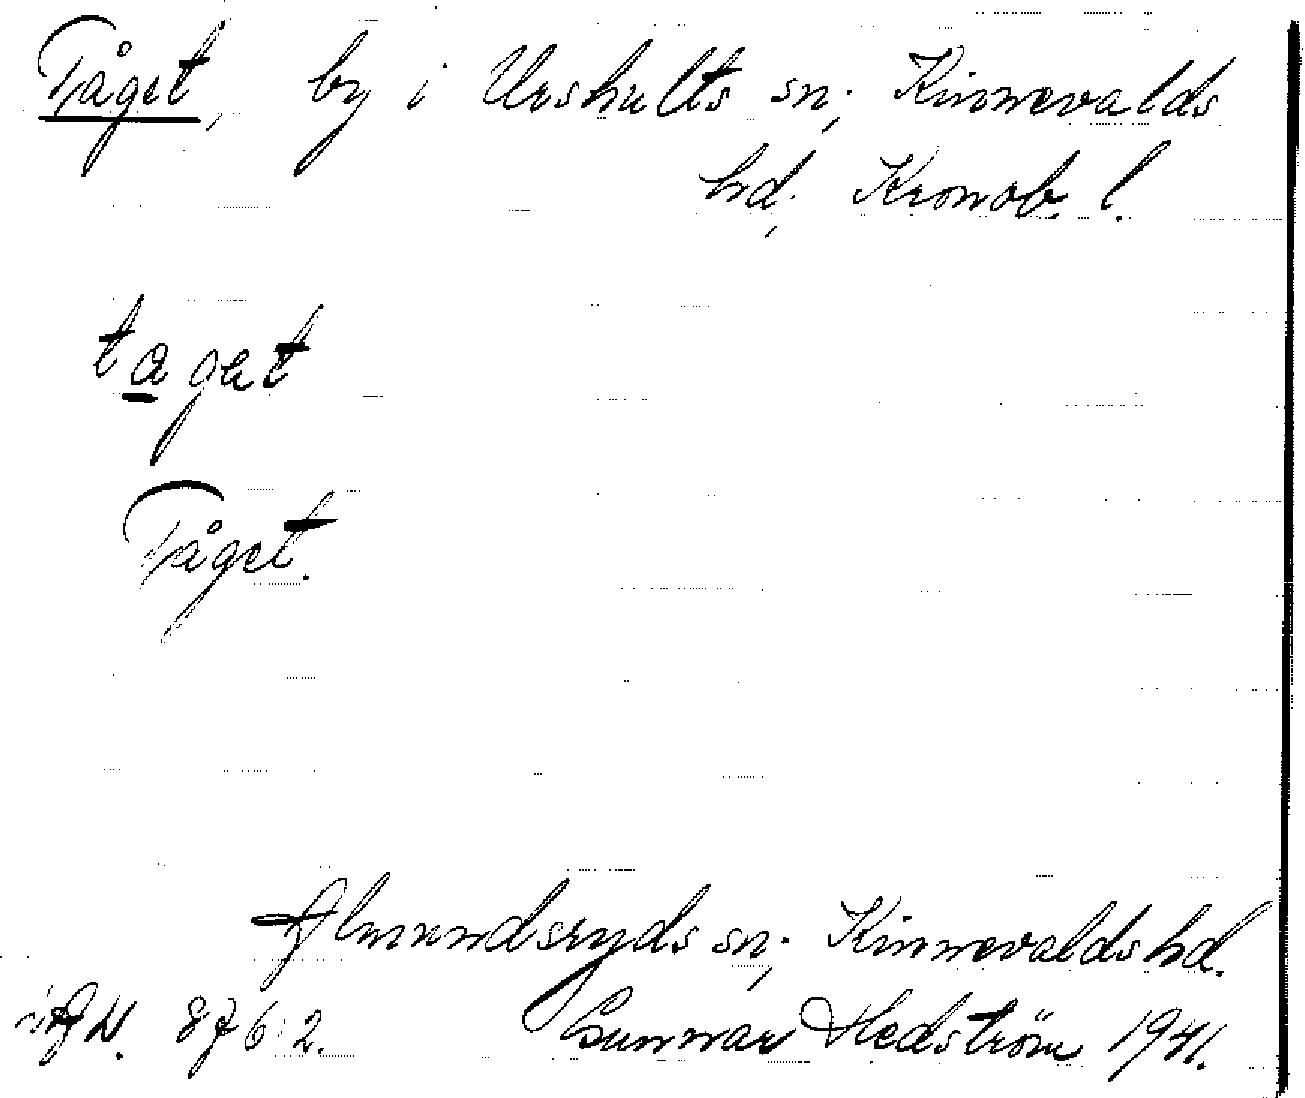 Tåget, by i Urshults sn, Kinnevalds
hd, Kronob. l.
taget
Tåget.
Almundsryds sn, Kinnevalds hd.
Gunnar Hedström 1941.